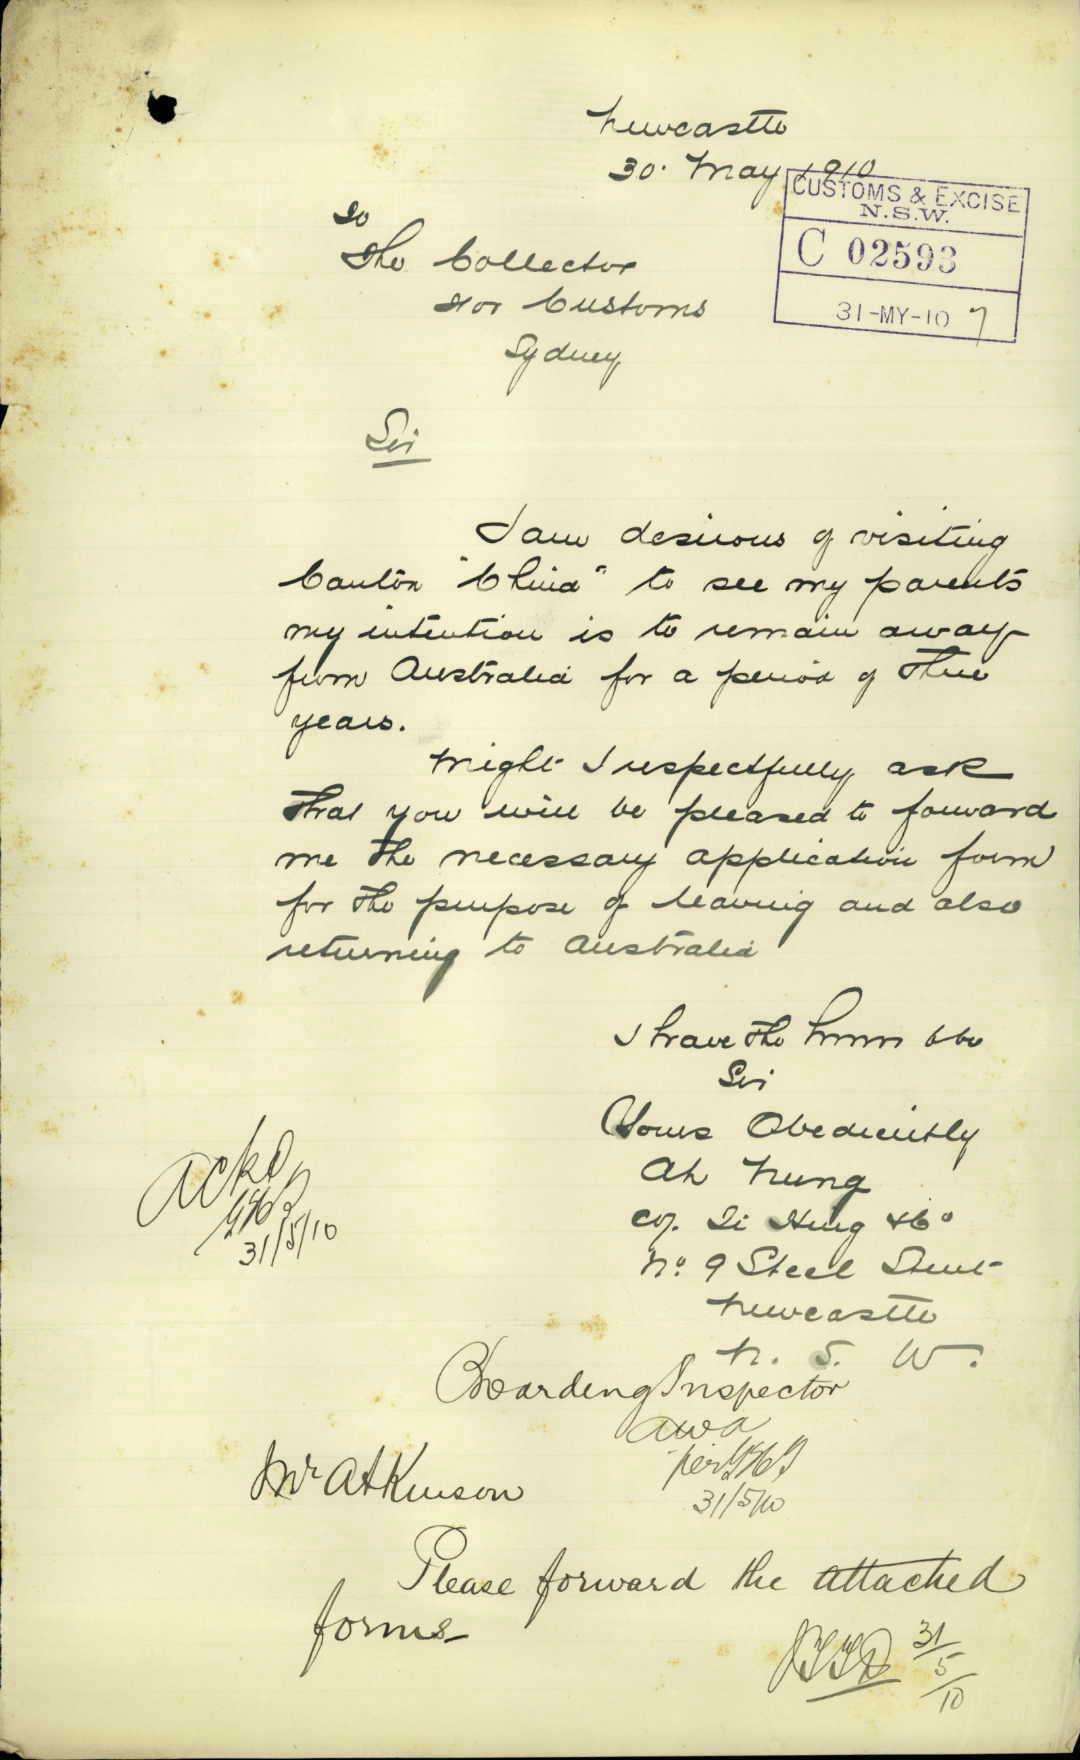 Newcastle
30. May 1910
CUSTOMS & EXCISE
N.S.W.
C 02593
31-MY-10 7
To
The Collector
For Customs
Sydney
Sir
I am desirous of visiting
Canton "China" to see my parents
my intention is to remain away
from Australia for a period of Three
years.
Might I respectfully ask
That you will be pleased to forward
me The necessary application form
for The purpose of leaving and also
returning to Australia
I have The honor to be
Sir
Yours Obediently
Ah Hung
C/o. Hing & Co
No. 9 Steel Street
Newcastle
N. S. W.
Ackd
31/5/10
Boarding Inspector
awa
per
31/5/10
Mr Atkinson
Please forward the attached
forms
31/5/10